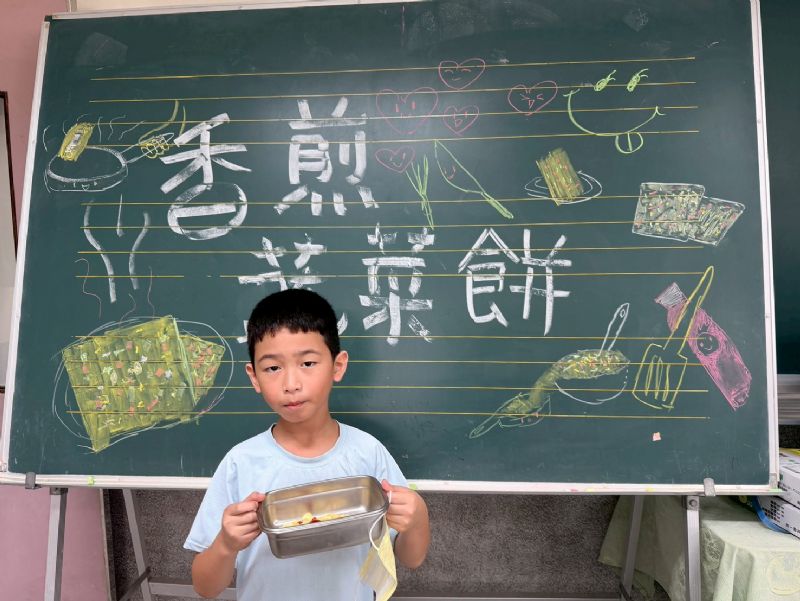 香煎
蔬菜餅